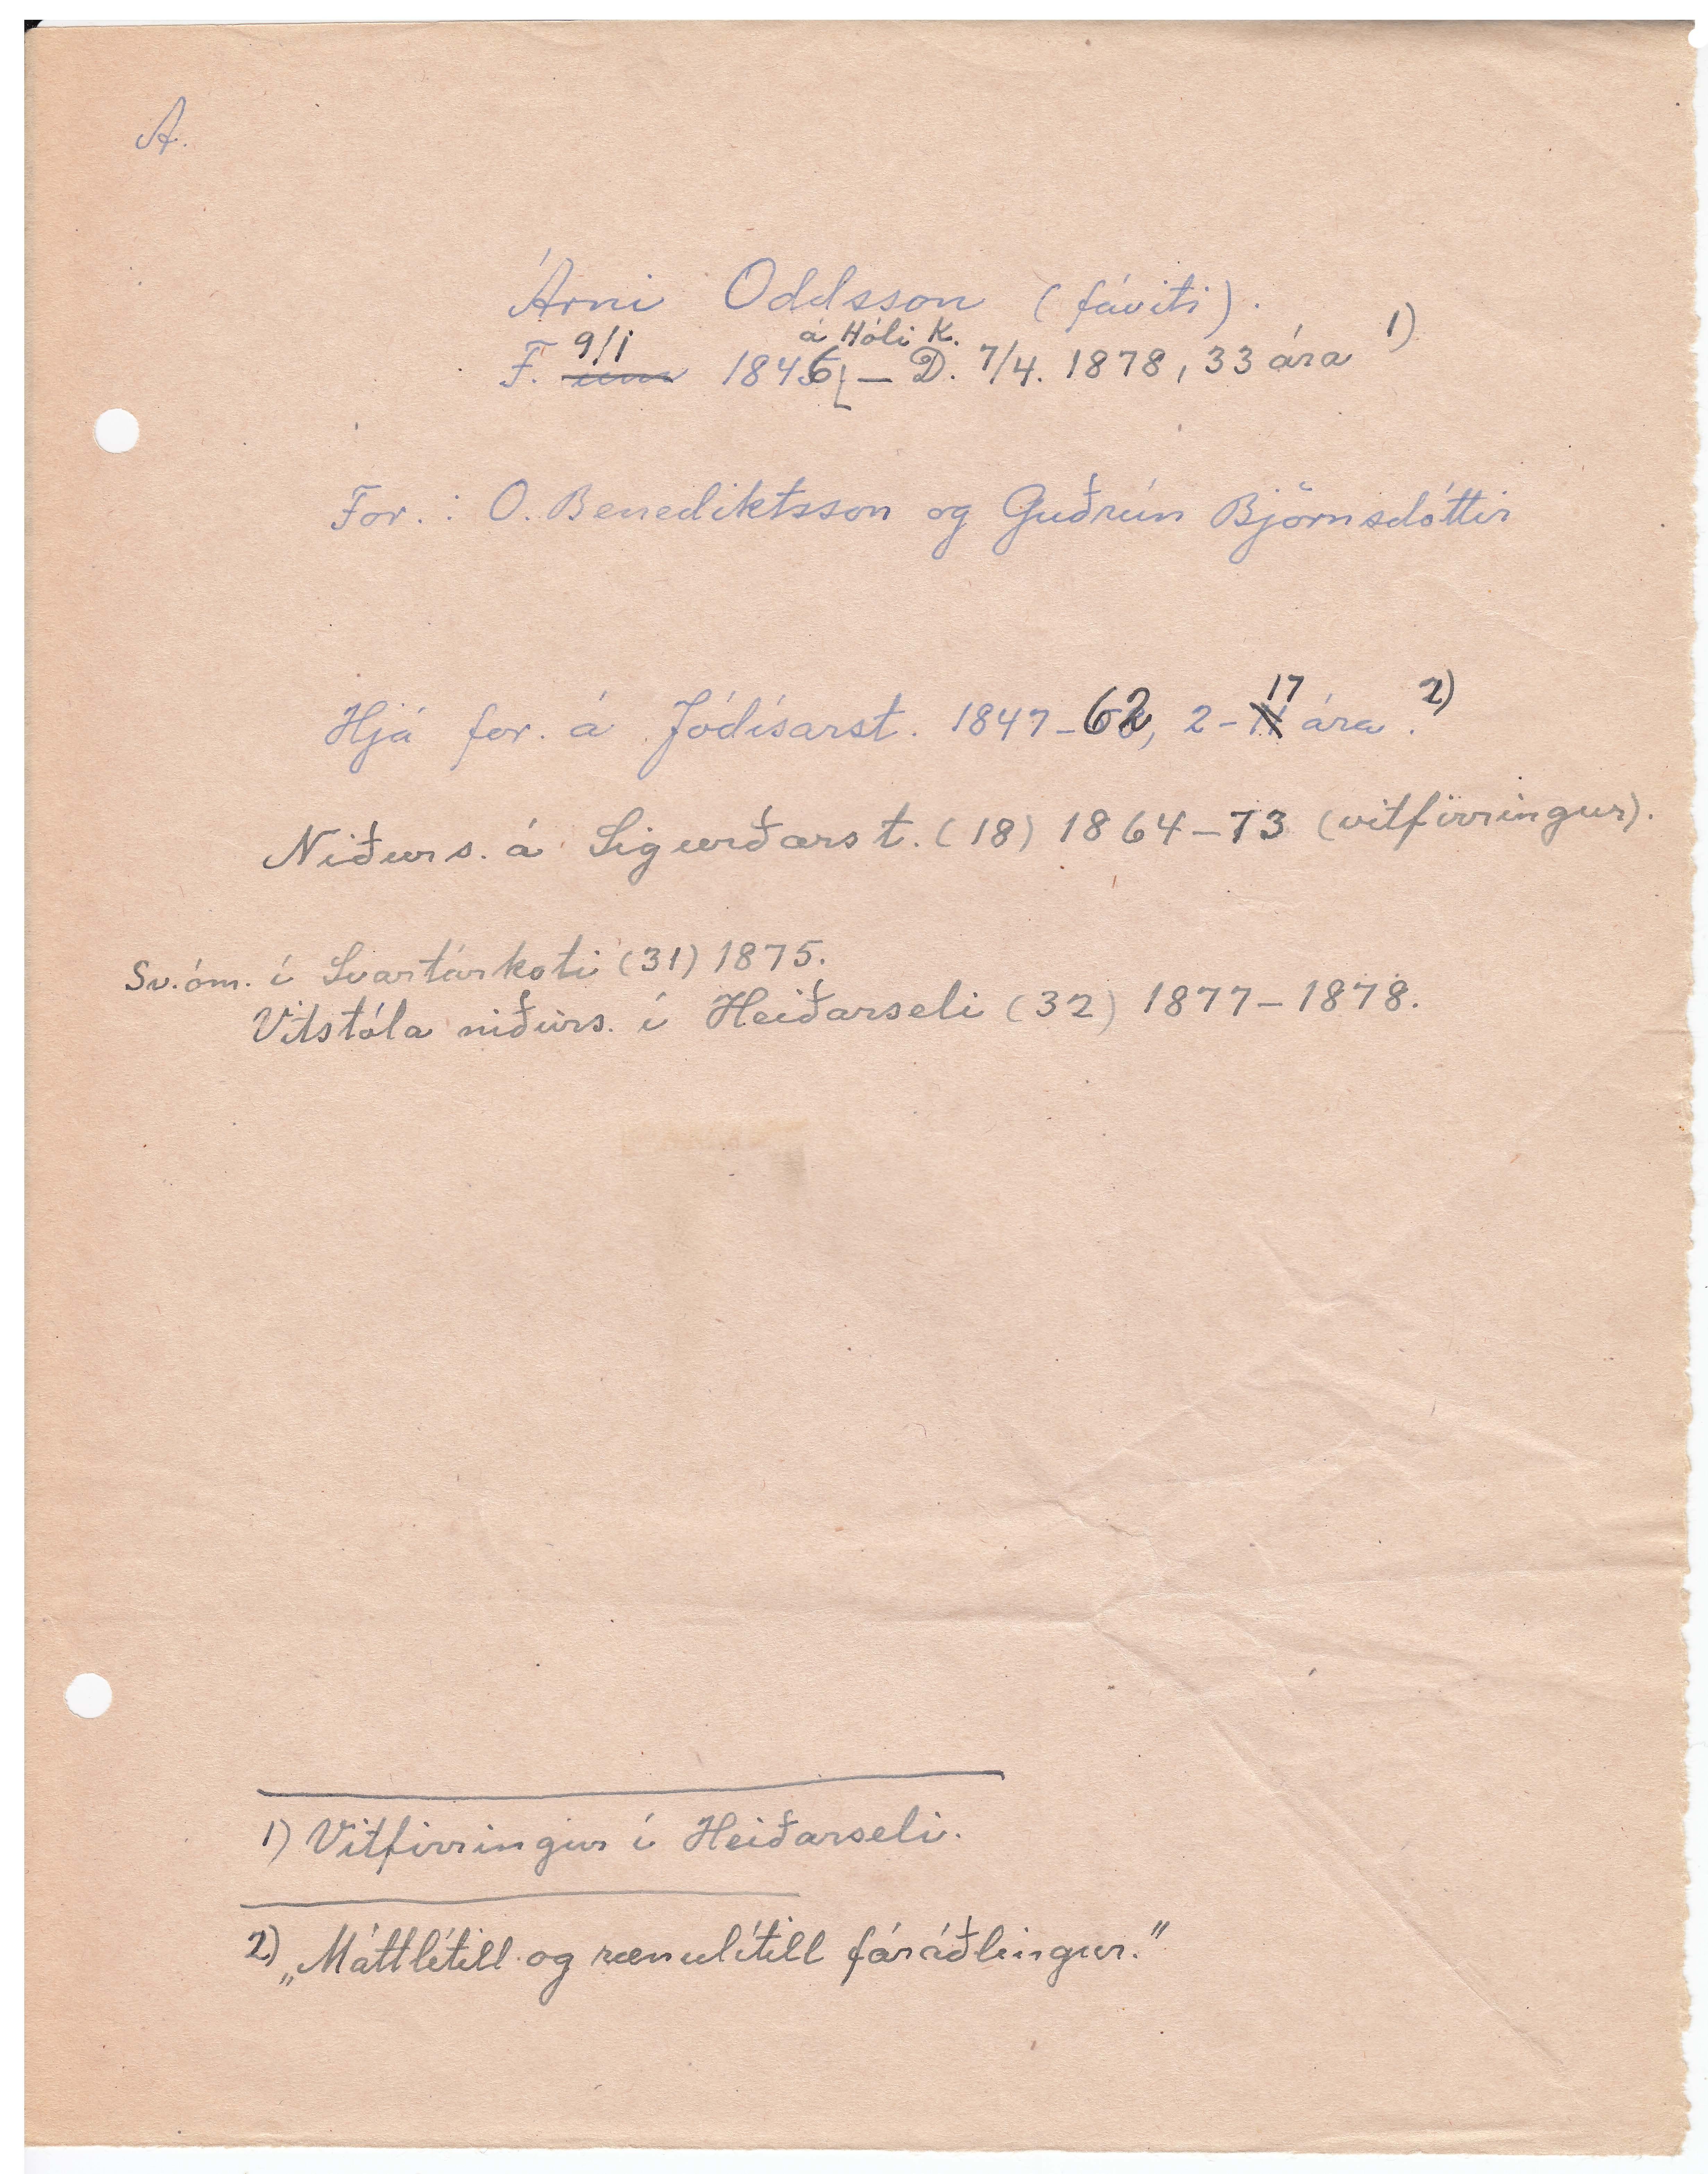 A.
Árni Oddsson (fáviti).
F. 9/1 1846 á Hóli K. – D. 7/4. 1878, 33 ára 1)
For.: O. Benediktsson og Guðrún Björnsdóttir
Hjá for. á Jódísarst. 1847–62, 2–17 ára. 2)
Niðurs. á Sigurðarst. (18) 1864–73 (vitfirringur).
Sv.óm. í Svartárkoti (31) 1875.
Vitstola niðurs. í Heiðarseli (32) 1877–1878.
1) Vitfirringur í Heiðarseli.
2) „Máttlítill og rænulítill fáráðlingur.“